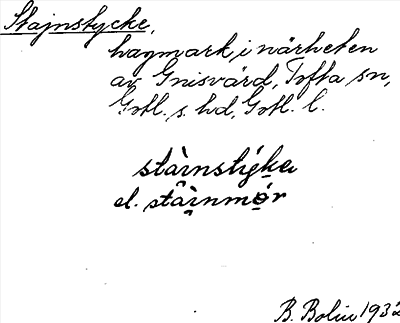 Stajnstycke,
hagmark i närheten
av Gnisvärd, Tofta sn,
Gotl. s. hd, Gotl. l.
el.
B. Bolin 1932